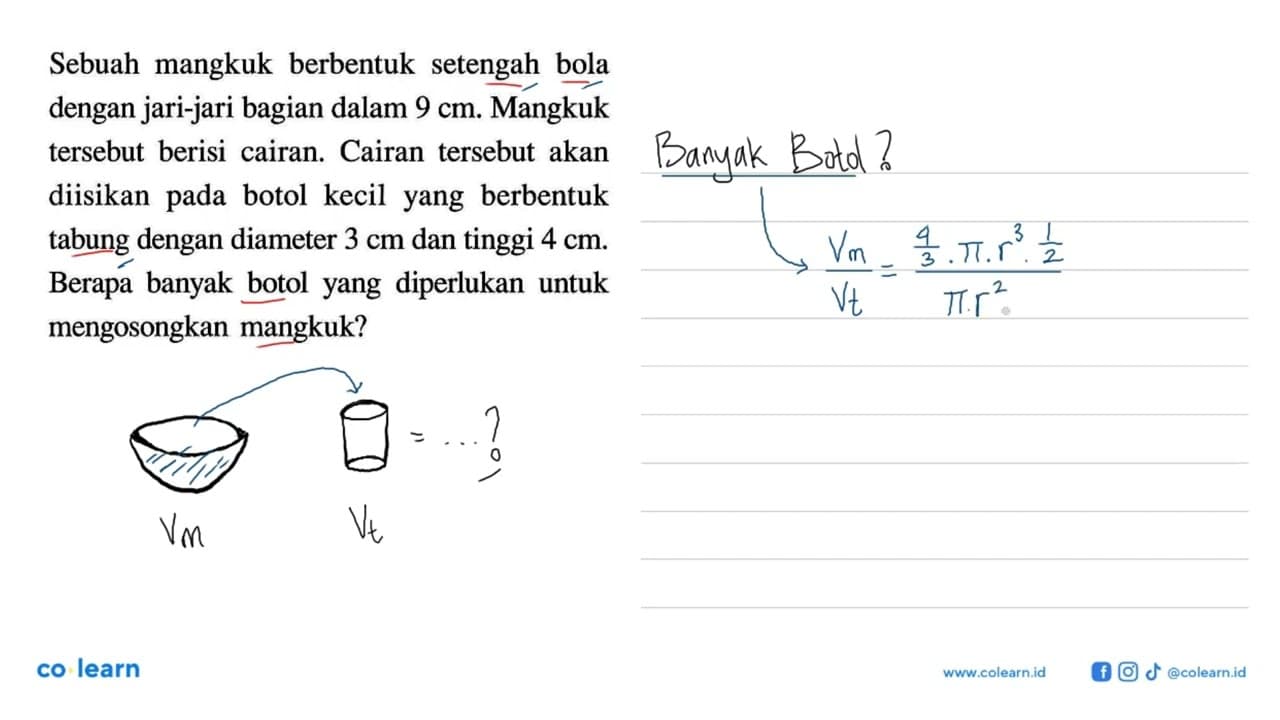 Sebuah mangkuk berbentuk setengah bola
dengan jari-jari bagian dalam 9 cm. Mangkuk
tersebut berisi cairan. Cairan tersebut akan
diisikan pada botol kecil yang berbentuk
tabung dengan diameter 3 cm dan tinggi 4 cm.
Berapa banyak botol yang diperlukan untuk
mengosongkan mangkuk?
= ...?
Vm
Vt
Banyak Botol?
Vm/Vt = 4/3 . π . r³ . 1/2 / π . r²
co learn
www.colearn.id
@colearn.id